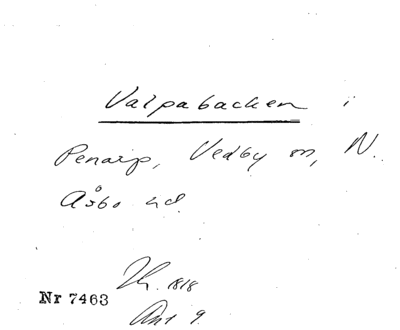 Valpabacken i
Penarp, Vedby sn, N.
Åsbo hd.
1818
Nr 7463
Ant 9.